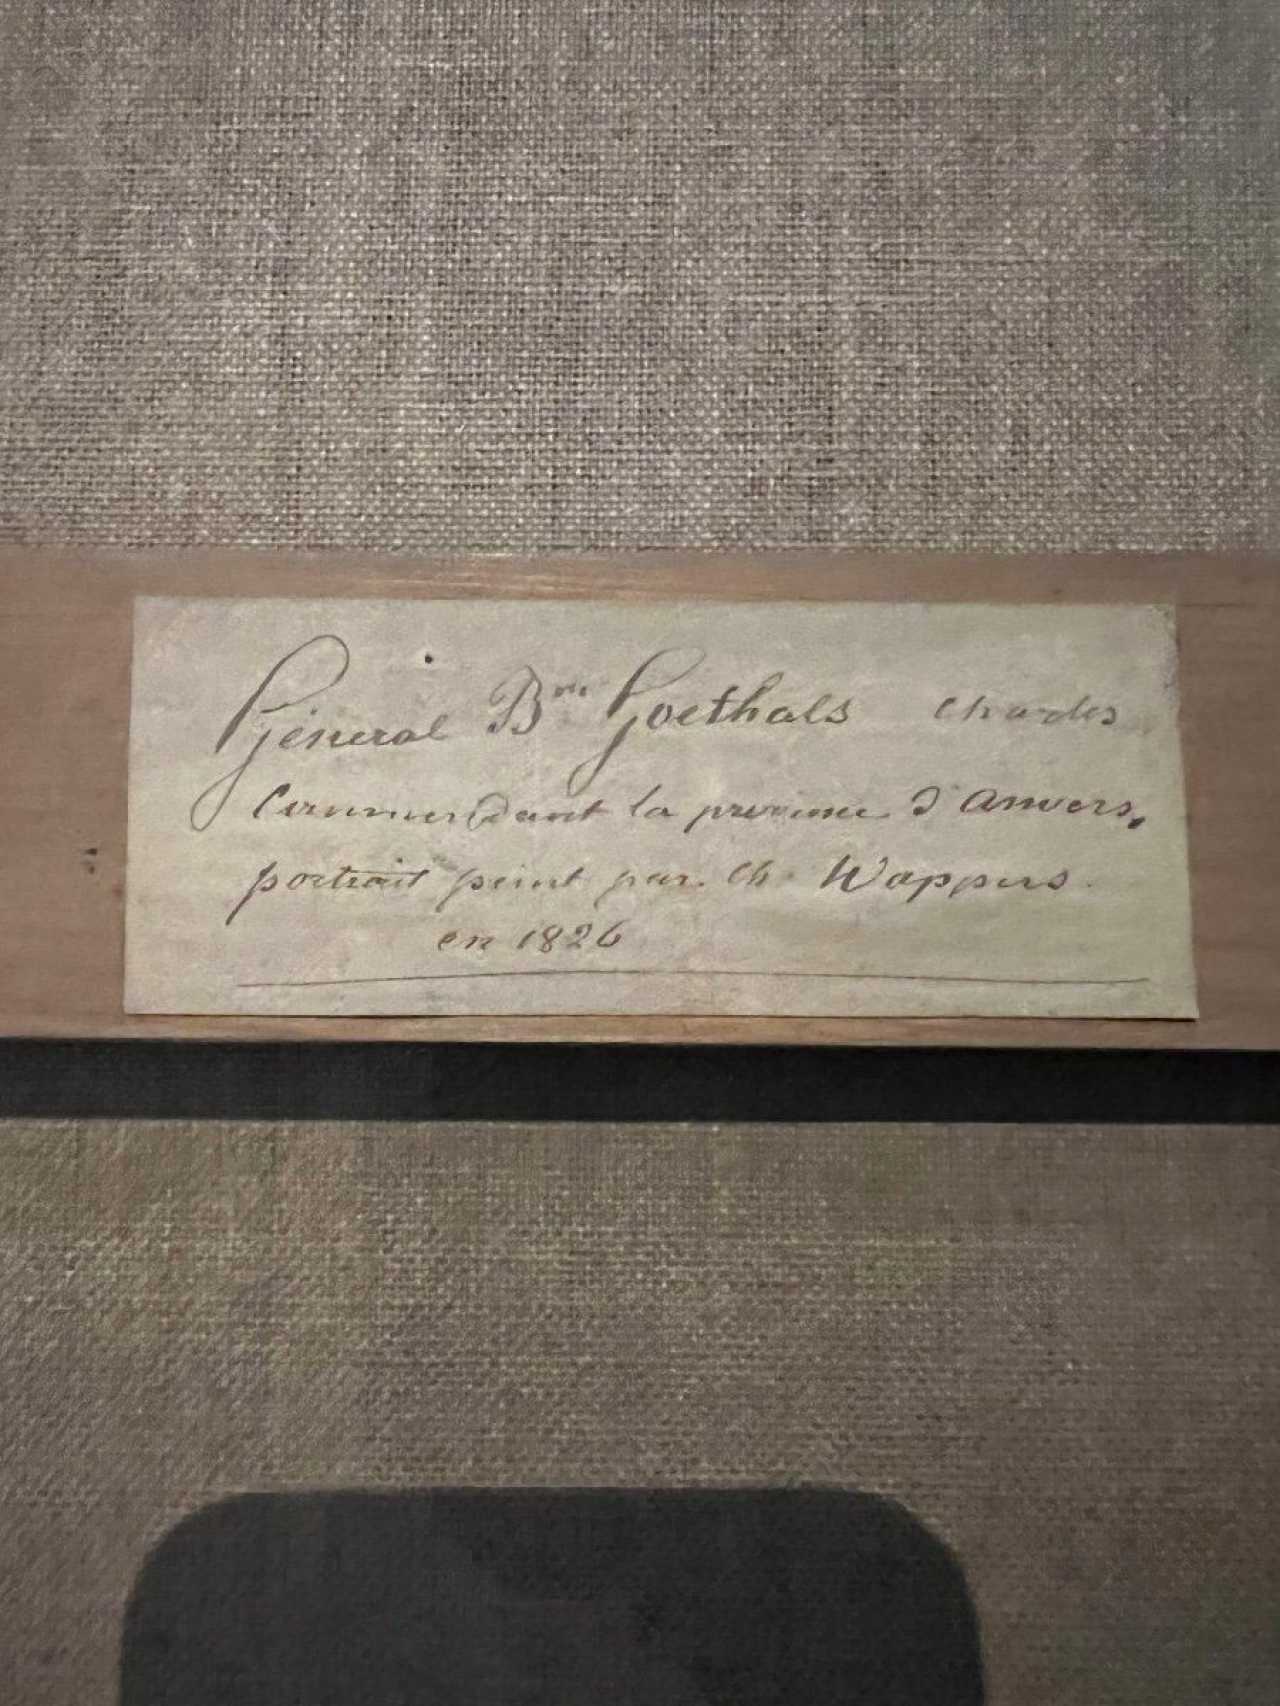 Général Bon Goethals Charles
Commendant la province d'anvers,
portrait peint par Ch. Wappers.
en 1826